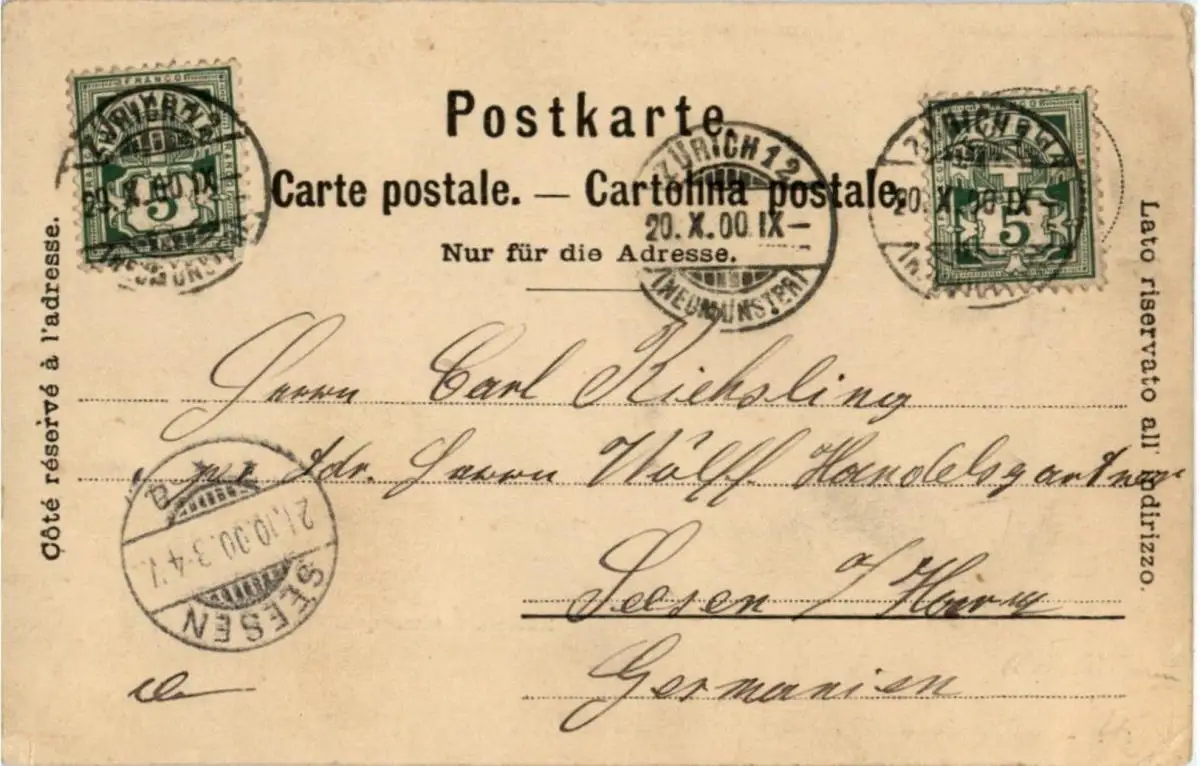 FRANCO
5
Postkarte
Carte postale. — Cartolina postale.
Nur für die Adresse.
ZÜRICH 12
20. X. 00 IX –
(NEUMÜNSTER)
ZÜRICH 12
20. X. 00 IX –
(NEUMÜNSTER)
ZÜRICH 12
20. X. 00 IX –
5
Côté réservé à l'adresse.
Lato riservato all' indirizzo.
Herrn Carl Kiehsling
adr. Herrn Wölff. Handelsgärtner
Seesen / Harz
Germanien
SEESEN
21.10.00. 3-4